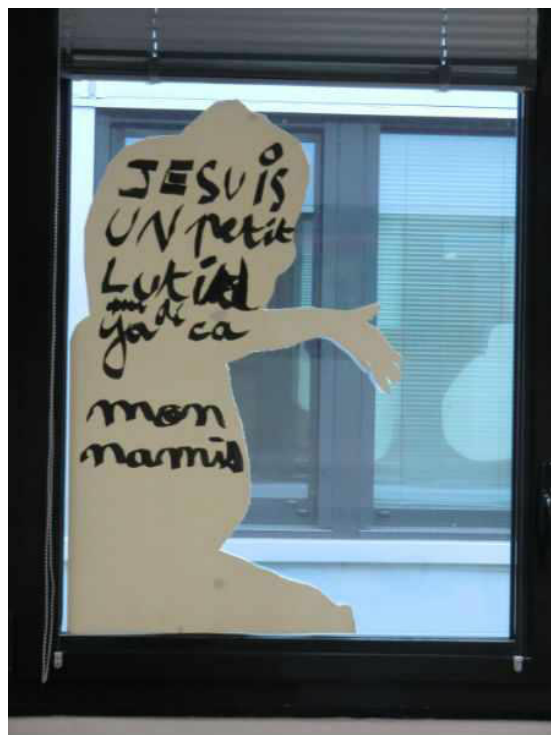 JESUiS
UN petit
Lutin
qui di
ya ca
mon
namis